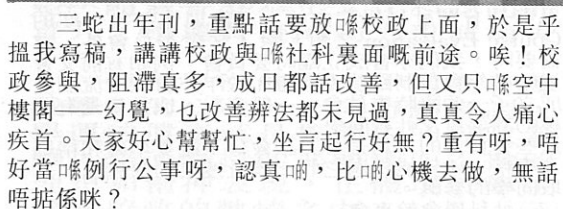 三蛇出年刊，重點話要放喺校政上面，於是乎
搵我寫稿，講講校政與喺社科裏面嘅前途。唉！校
政參與，阻滯真多，成日都話改善，但又只喺空中
樓閣——幻覺，乜改善辦法都未見過，真真令人痛心
疾首。大家好心幫幫忙，坐言起行好無？重有呀，唔
好當喺例行公事呀，認真啲，比啲心機去做，無話
唔掂係咪？